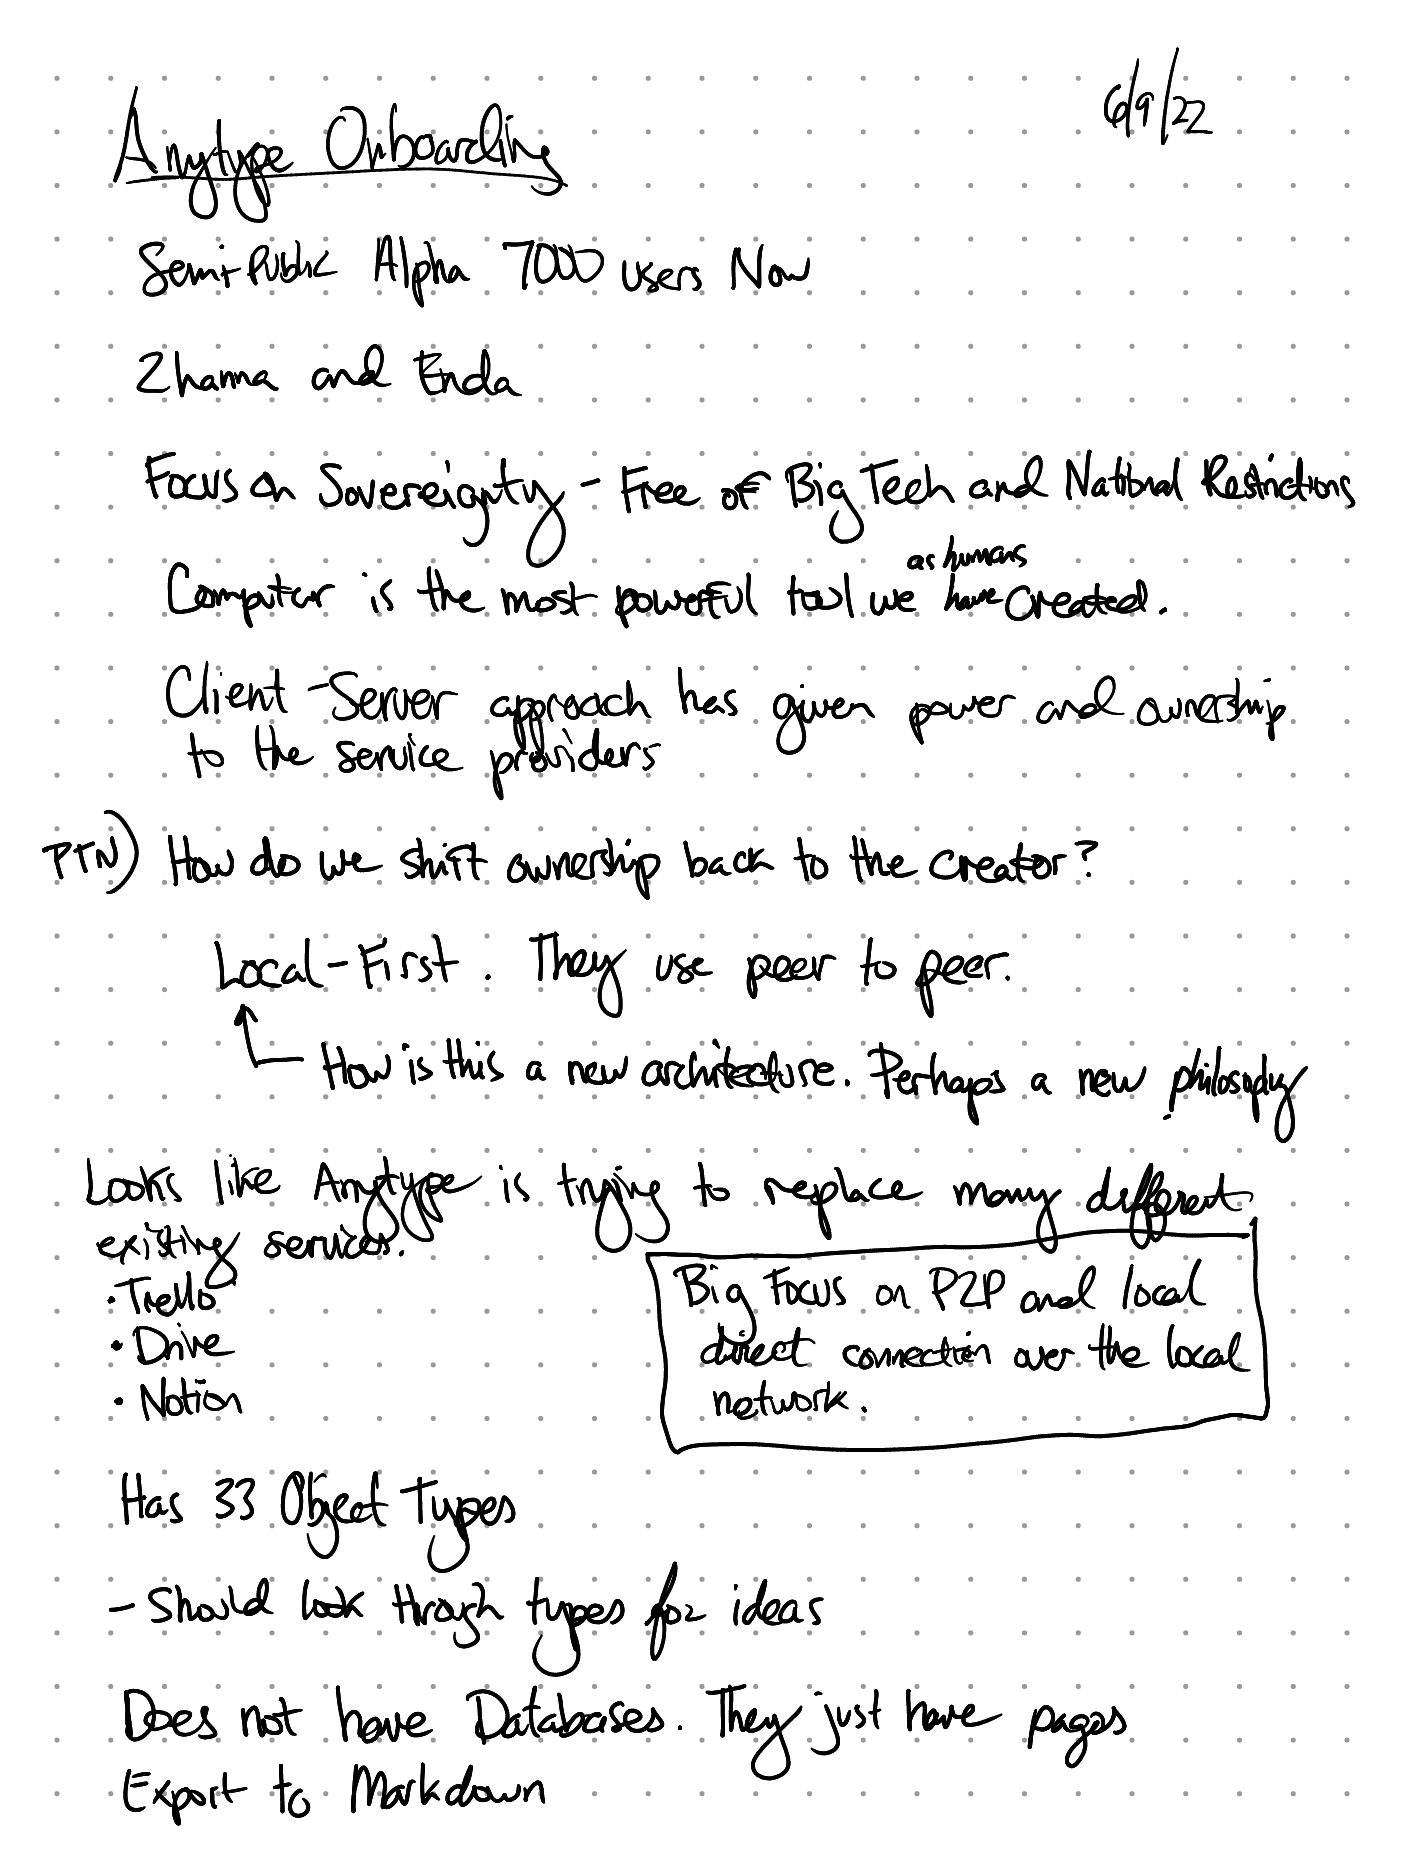 6/9/22
Anytype Onboarding
Semi-Public Alpha 7000 users Now
Zhanna and Enda
Focus on Sovereignty - Free of Big Tech and National Restrictions
as humans
Computer is the most powerful tool we have created.
Client-Server approach has given power and ownership
to the service providers
PTN) How do we shift ownership back to the creator?
Local-First. They use peer to peer.
How is this a new architecture. Perhaps a new philosophy
Looks like Anytype is trying to replace many different
existing services.
• Trello
• Drive
• Notion
Big Focus on P2P and local
direct connection over the local
network.
Has 33 Object Types
- Should look through types for ideas
Does not have Databases. They just have pages
Export to Markdown